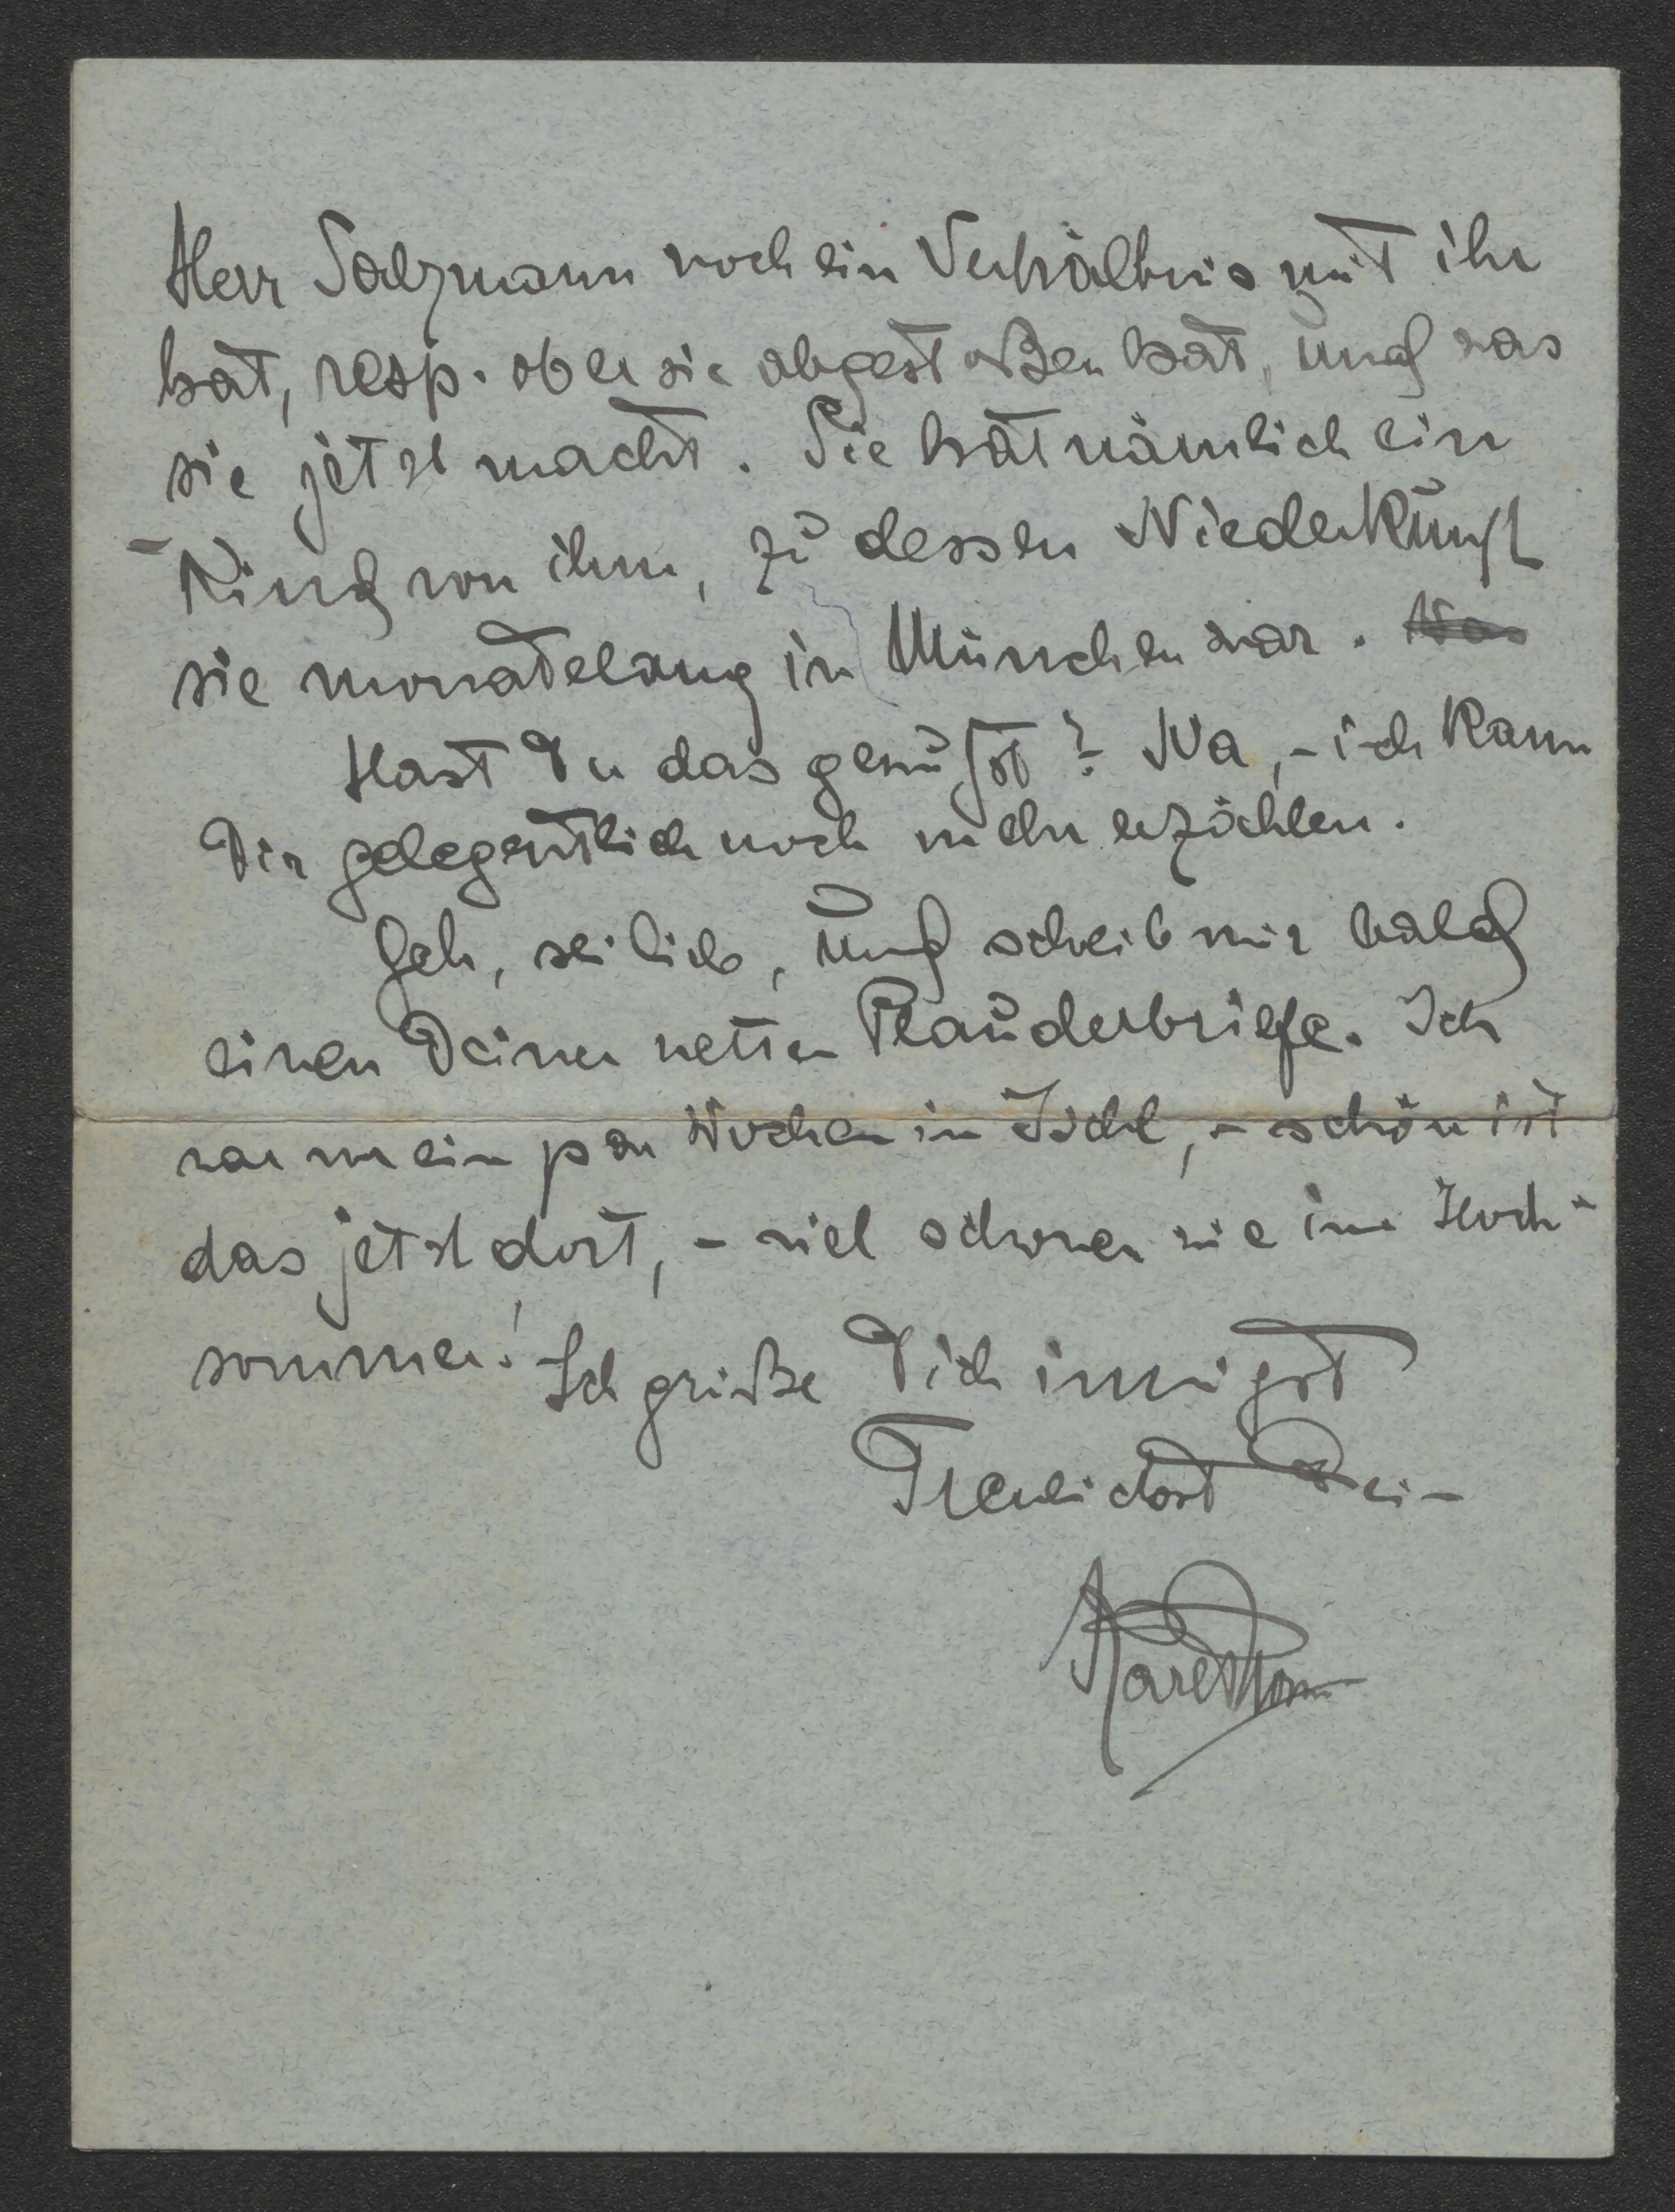 Herr Salzmann noch ein Verhältnis mit ihr
hat, resp. ob er sie abgestoßen hat, und was
sie jetzt macht. Sie hat nämlich ein
Kind von ihm, zu dessen Niederkunft
sie monatelang in München war.
Hast Du das gewußt? Na, – ich kann
Dir gelegentlich noch mehr erzählen.
Geh, sei lieb, und schreib mir bald
einen Deiner netten Plauderbriefe. Ich
war nur ein paar Wochen in Ischl, – schön ist
das jetzt dort, – viel schöner wie im Hoch-
sommer! Ich grüße Dich innigst
Treulichst Dein